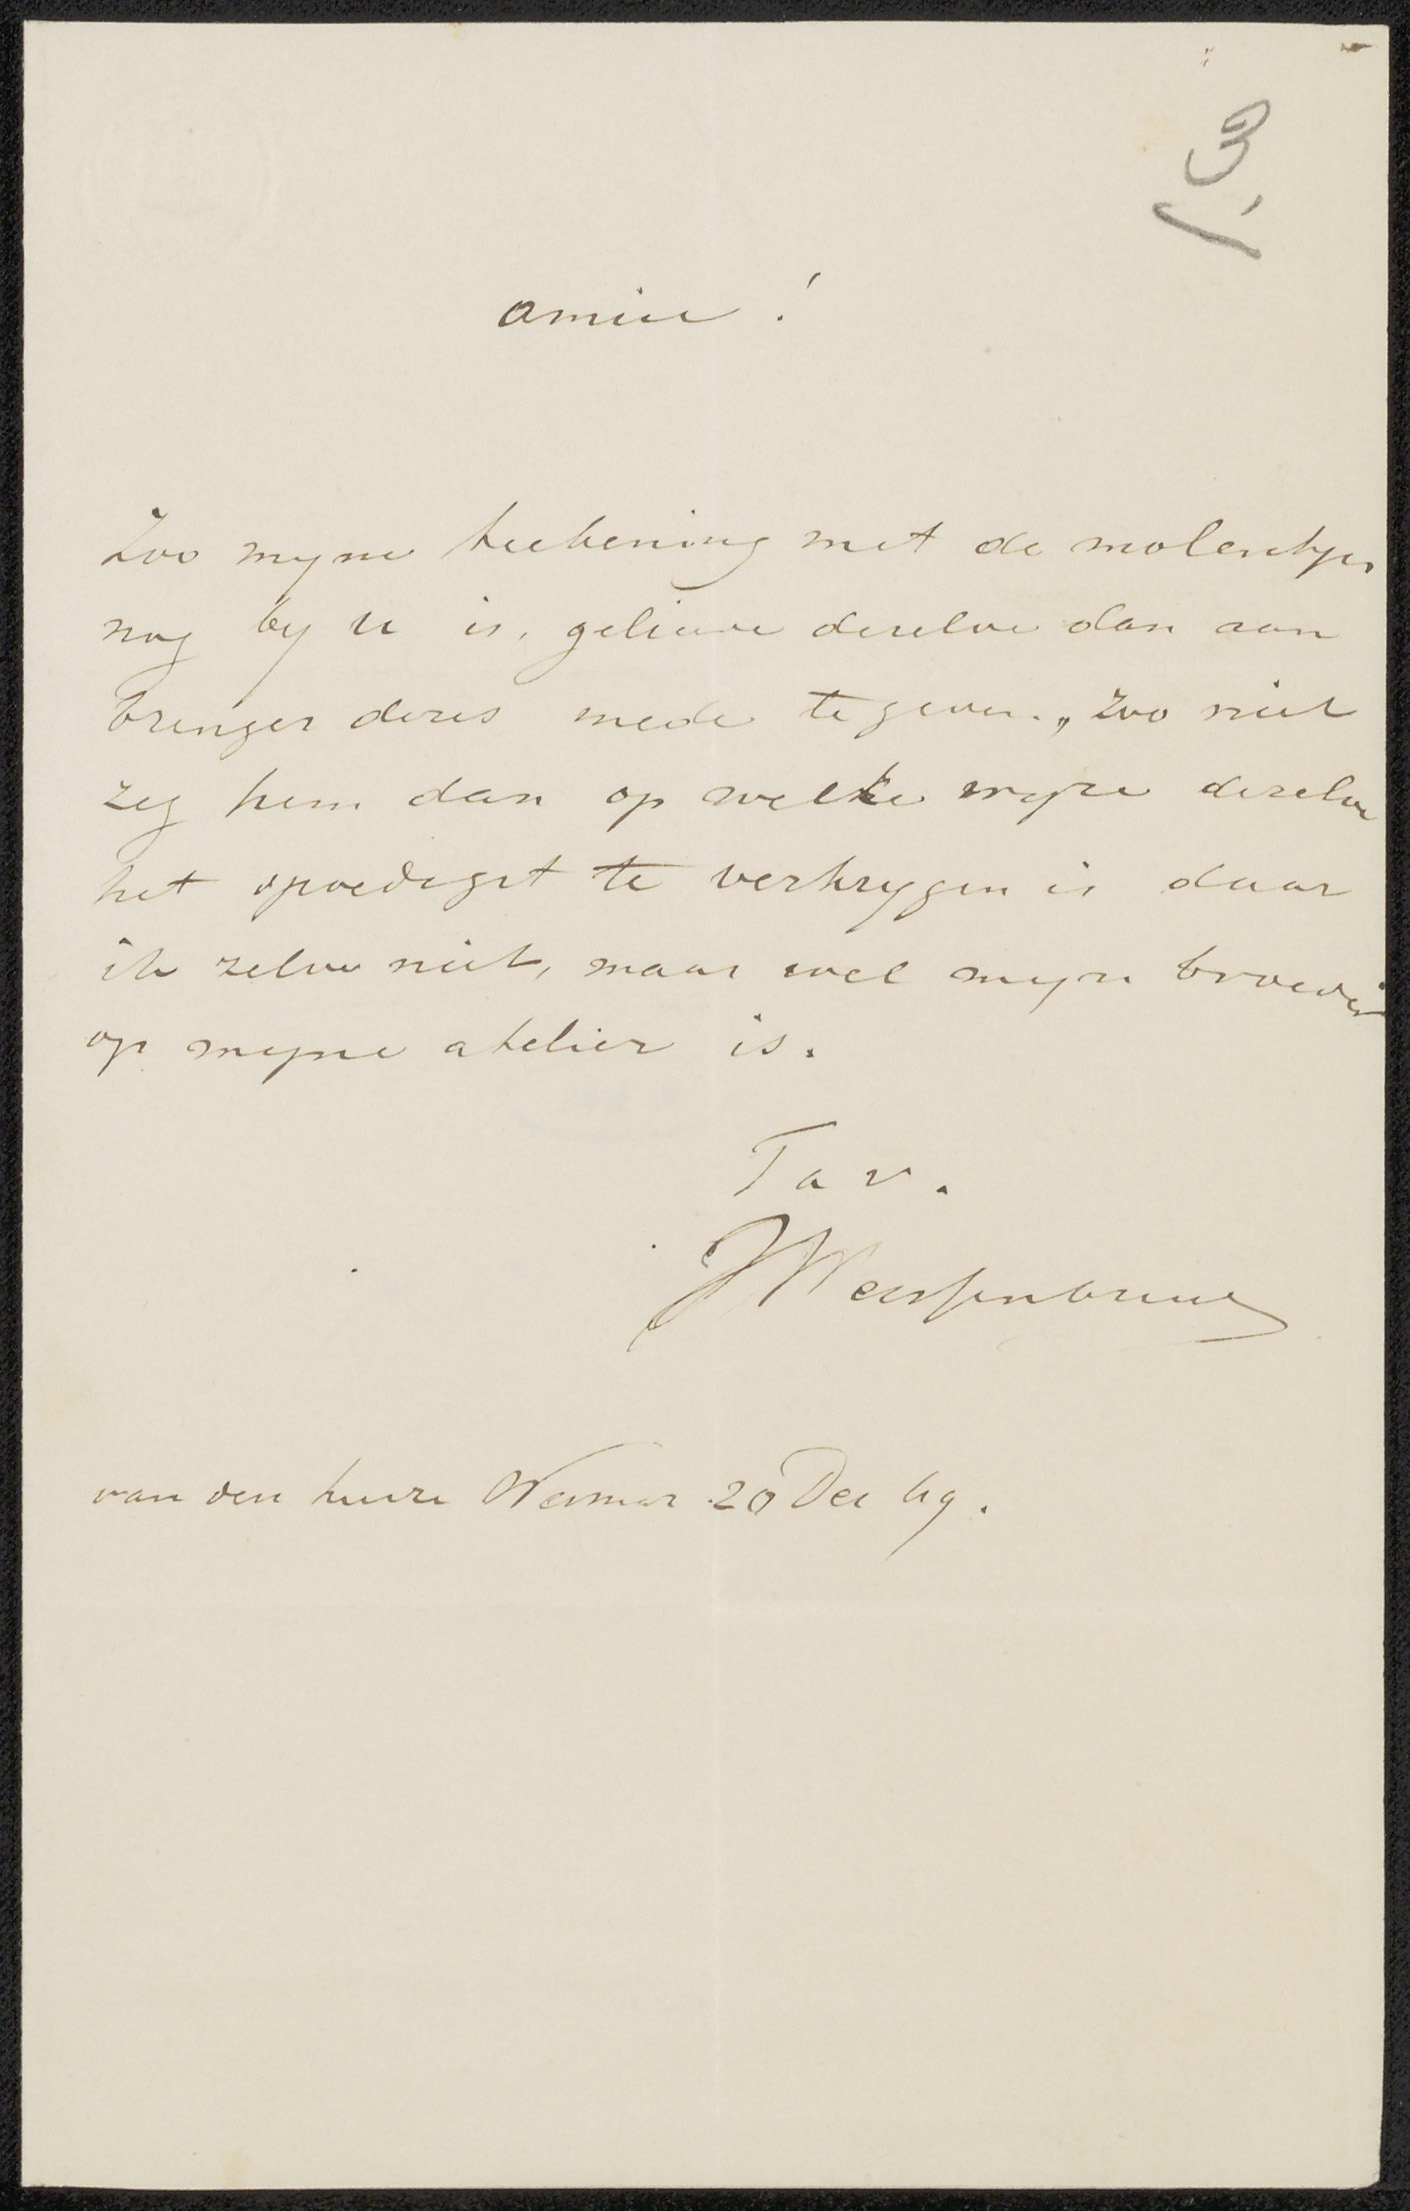 Amice!
Zoo myne teekening met de molentjes
nog by u is, gelieve dezelve dan aan
brenger dezes mede te geven., zoo niet
zeg hem dan op welke wyze dezelve
het spoedigst te verkrygen is daar
ik zelve niet, maar wel myn broeder
op myne atelier is.
T a v.
JWeissenbruch
van den heere Weimar 20 Dec 69.